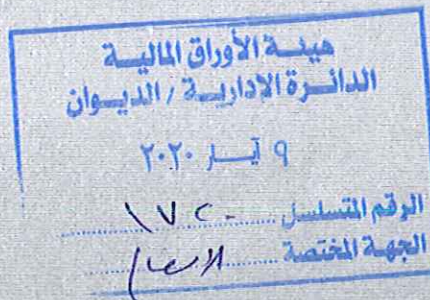 هيئة الأوراق المالية
الدائرة الإدارية / الديوان
٩ آيار ٢٠٢٠
الرقم المتسلسل ١٧٢٠
الجهة المختصة الافصاح